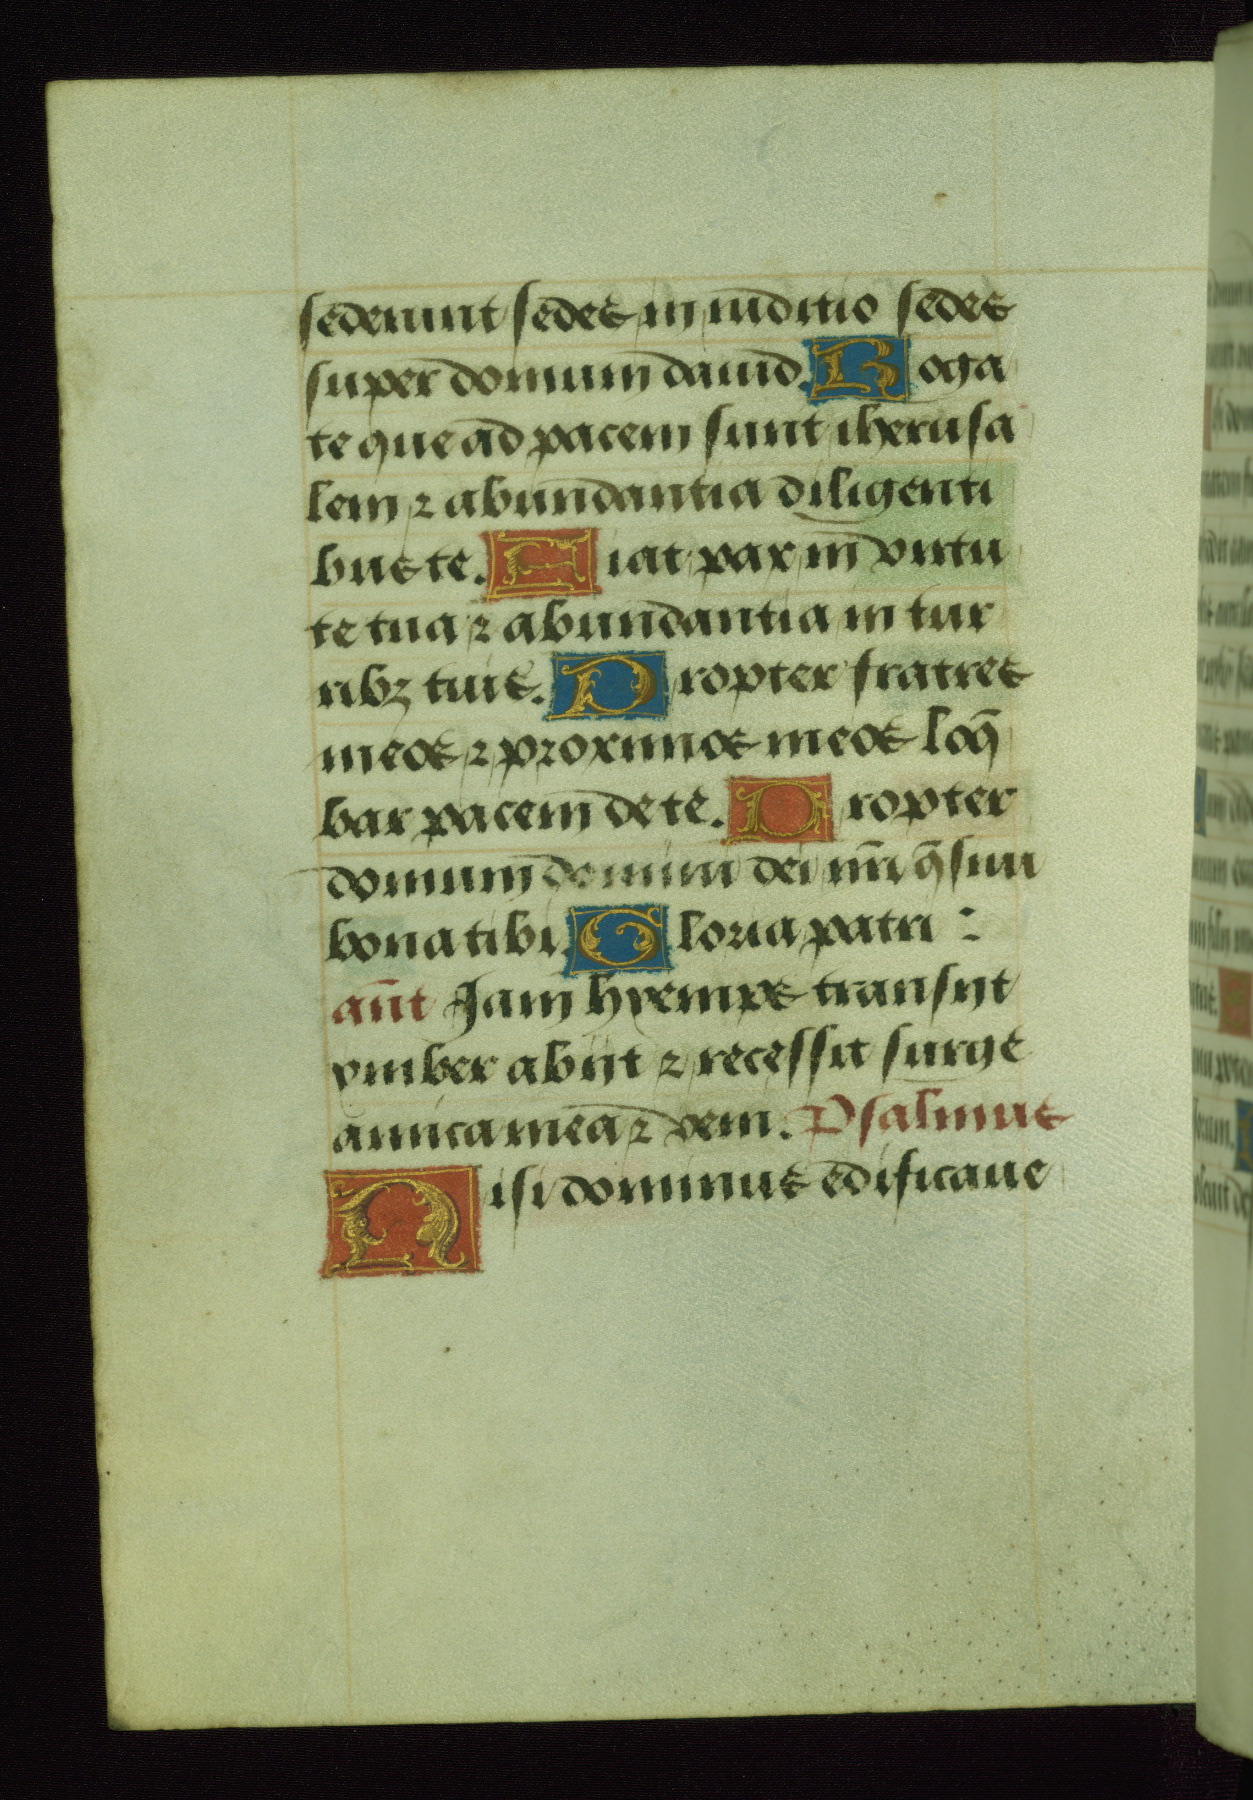 sederunt sedes in iuditio sedes
super domum dauid. Roga
te que ad pacem sunt iherusa
lem ⁊ abundantia diligenti
bus te. Fiat pax in virtu
te tua ⁊ abundantia in tur
ribꝫ tuis. Propter fratres
meos ⁊ proximos meos loq̄
bar pacem de te. Propter
domum domini dei nr̄i q̄siui
bona tibi. Gloria patri :
an̄t Jam hyemps transijt
ymber abijt ⁊ recessit surge
amica mea ⁊ veni. Psalmus
Nisi dominus edificaue